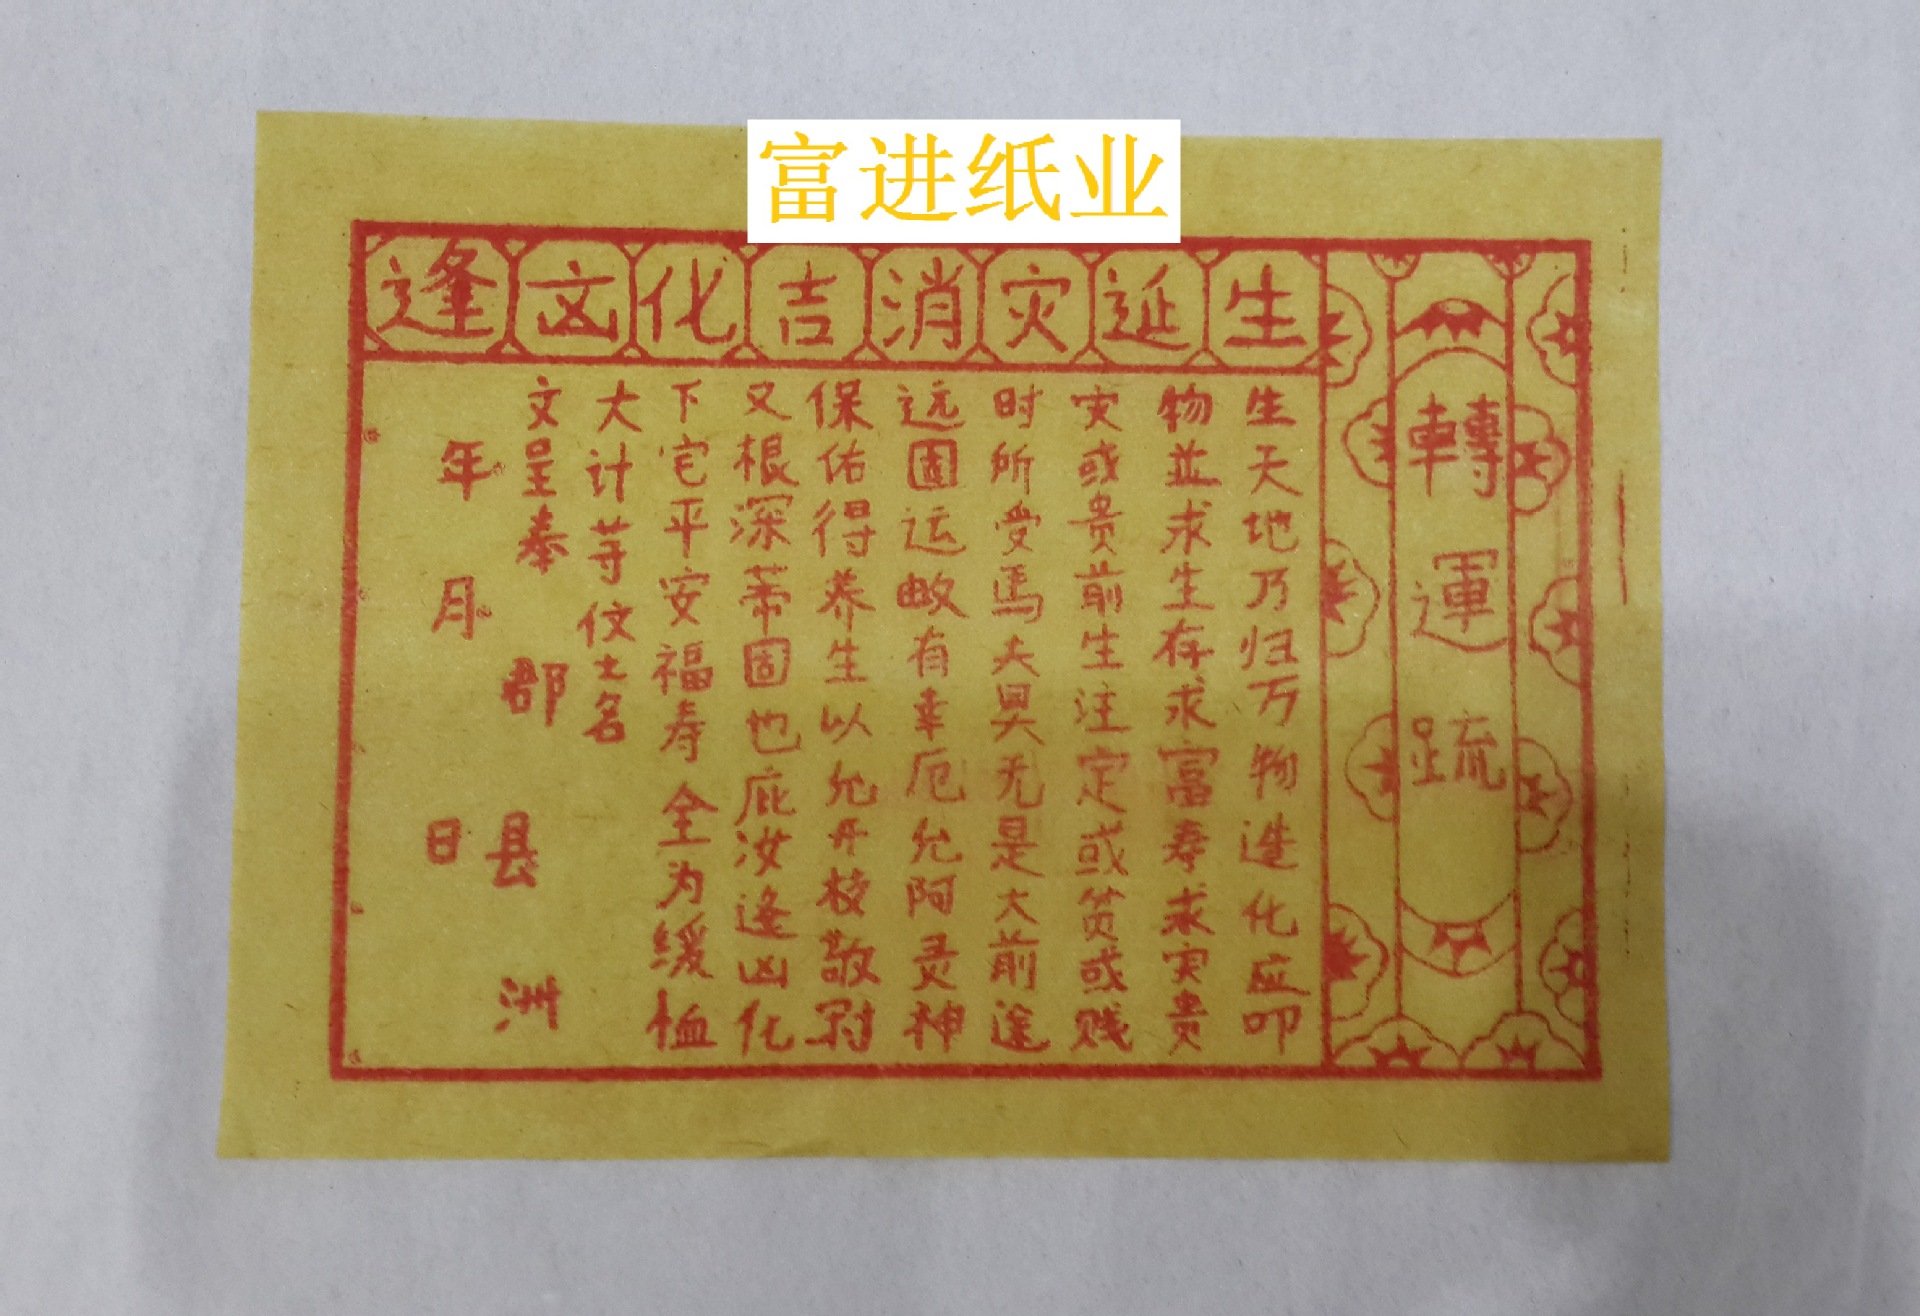 富进纸业
逢凶化吉消灾延生
轉運疏
生天地乃归万物造化应叩
物並求生存求富奉求灾贵
灾或贵前生注定或贫或贱
时所受馬夫昊无是大前途
远固运故有幸厄允阿灵神
保佑得养生以允开枝敬尉
又根深蒂固也庇汝逢凶化
下宅平安福寿全为缓恤
大计芽伩士名
文呈奉 郡 县 洲
年 月 日